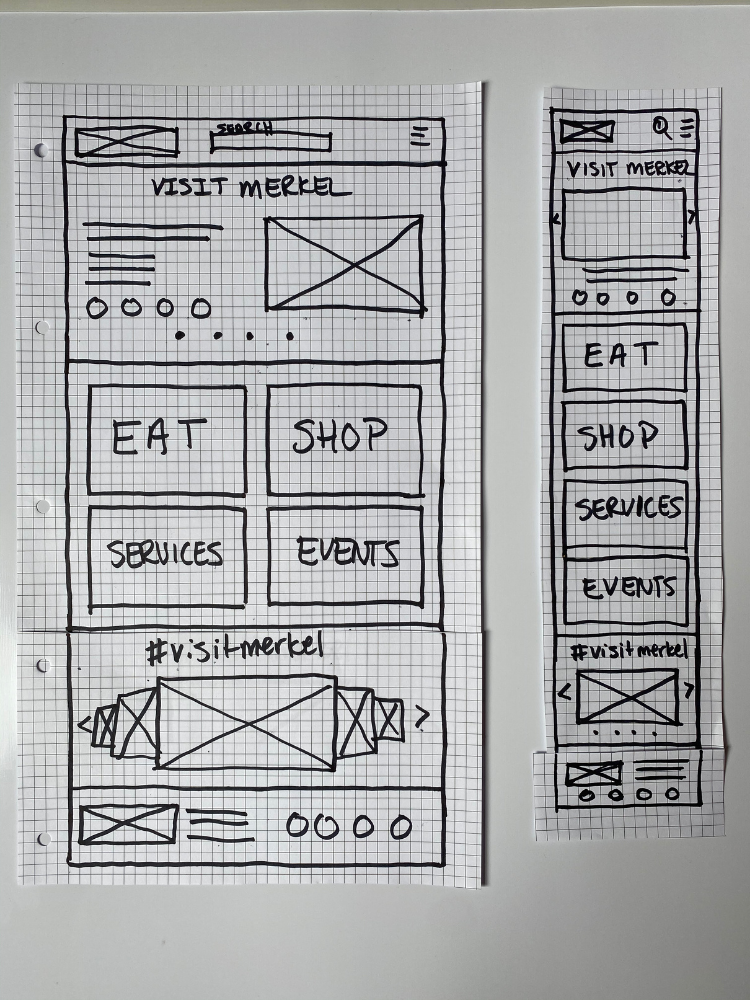 SEARCH
VISIT MERKEL
EAT
SHOP
SERVICES
EVENTS
#visitmerkel
VISIT MERKEL
EAT
SHOP
SERVICES
EVENTS
#visitmerkel